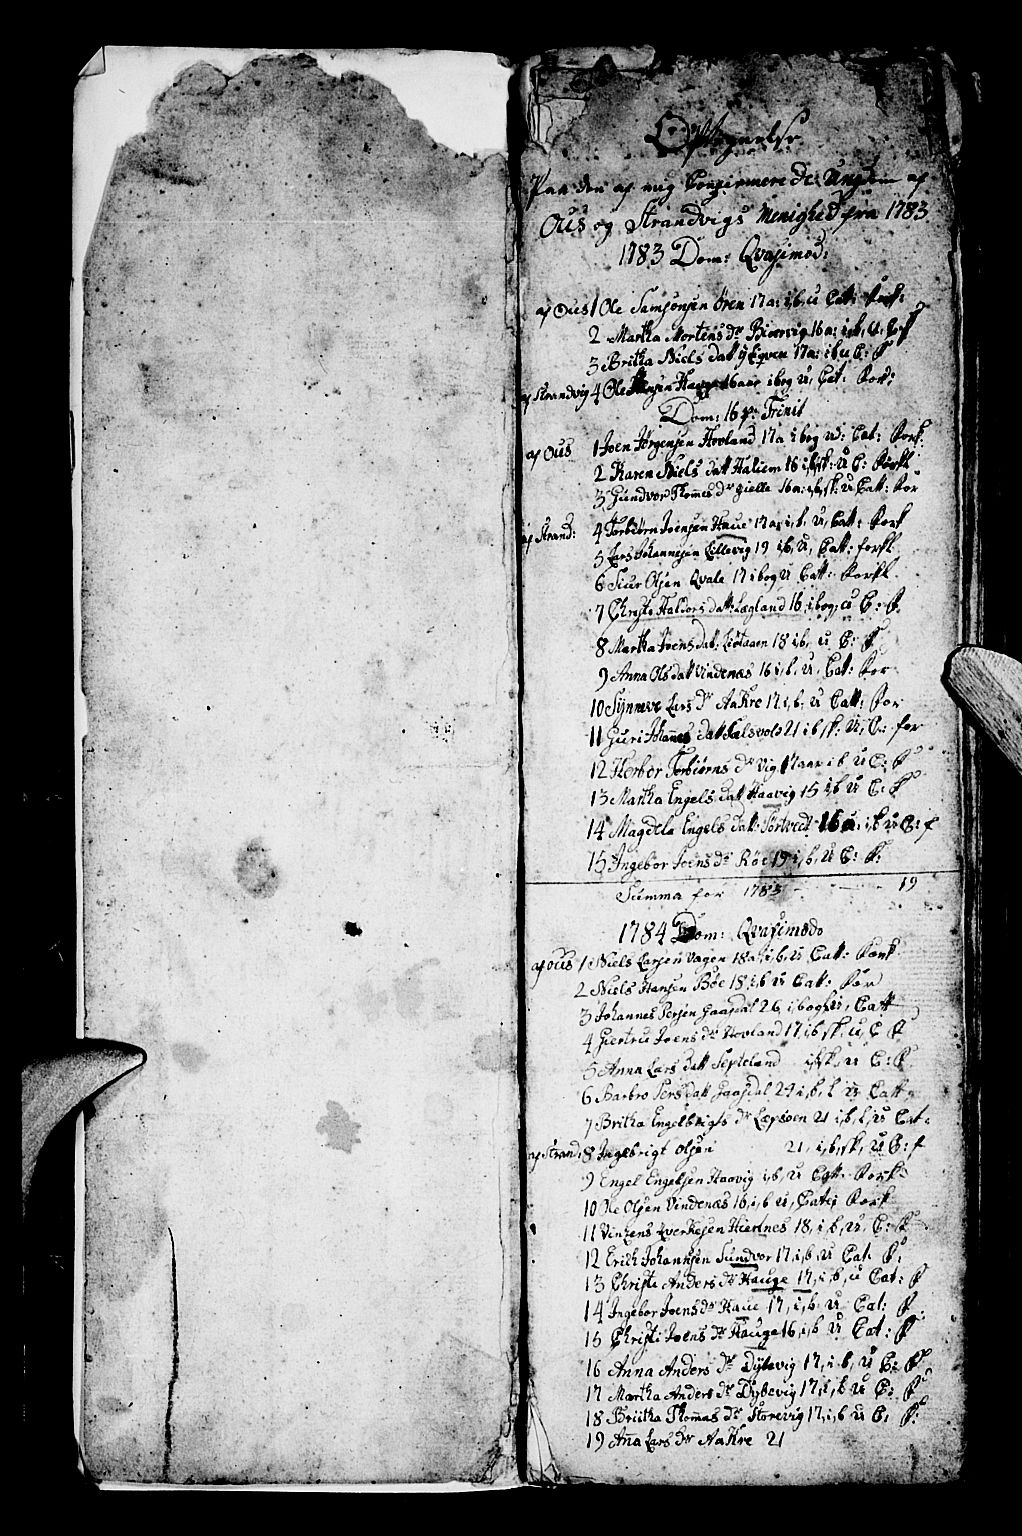 Optegnelse
Paa den af mig Confirmerede Ungdom af
Ous og Strandvigs Menighed fra 1783
1783 Dom: Qvasimod:
af Ous 1 Ole Samsonsen Øren 17 a: i b, u Cat: Forkl:
2 Martha Mortens dr 16 a: i b, u, Forkl
3 Britha Niels datt 17 a: i b u C: F
af Strandvig 4 Ole Hauge 16 aar i bog u, Cat: Fork:
Dom: 16 p: Trinit
af Ous 1 Joen Jørgensen Hovland 17 a i bog ud: Cat: Fork:
2 Karen Niels datt Haliem 16 i b, sk: u C: Forkl
3 Gundvor Thomes dr gielle 16 a: i b, sk: u Catt: For
af Strand: 4 Torbiørn Joensen Haue 17 a, i, b, u, Catt: Fork
5 Lars Johannesen Lillevig 19 i b, u, Catt: forkl
6 Siur Olsen Qvale 17 i bog u Catt: Forkl
7 Christi Haldors datt: Lægland 16, i bog, u C: F.
8 Martha Joens dat: Liøtaaen 18 i b, u C: F
9 Anna Ols datt Vindenæs 16 i, b, u, Cat: For
10 Synneve Lars dr Aakre 17, i b, u Catt: For
11 Guri Johannes datt Salsvold 21 i b sk: u, C: for
12 Herbor Torbiørns dr Vig 17 aar i b u C: F
13 Martha Engels datt Haavig 15 i b u C: F
14 Magdela Engels datt: Tortvedt 16 a, i, b u C: f
15 Ingebor Joens dr Røe 19 i, b, u C: F:
Summa for 1783 - - - 19
1784 Dom: Qvasimodo
af Ous 1 Niels Larsen Vagen 18 a, i, b, u Catt: Fork
2 Niels Hansen Bøe 18, i, b u Catt: For
3 Johannes Persen Gaasdal 26, i bog, u, Catt
4 Giertru Joens dr Hovland 17, i b, sk, u, C F
5 Anna Lars datt Septeland i b, sk, u C: F
6 Barbro Pers datt Gaasdal 24 i, b, l u Catt
7 Britha Engelbrigts dr Lepsøen 21 i, b, l, u Cat:
af Strand: 8 Ingebrigt Olsen 21, i, b, sk, u C: f
9 Engel Engelsen Haavig i, b, u Catt: Fork
10 Ole Olsen Vindenæs 16, i, b u, Cate; Fork
11 Vinzens Lverkesen Hiertnes 18, i, b, u, C: F
12 Erich Johannsen Sundvor 17, i, b, u Cat. F:
13 Christi Anders dr Hauge 17, i, b, u Cat: F
14 Ingebor Joens dr Haue 17, i, b, u Cat: F
15 Christi Joens dr Hauge 16, i, b u Cat: F
16 Anna Anders dr Dybevig 17, i, b, u C: F
17 Martha Anders dr Dybevig 17, i, b u C: F
18 Britha Thomas dr Storevig 17, i, b u C, F:
19 Aña Lars dr Aakre 21